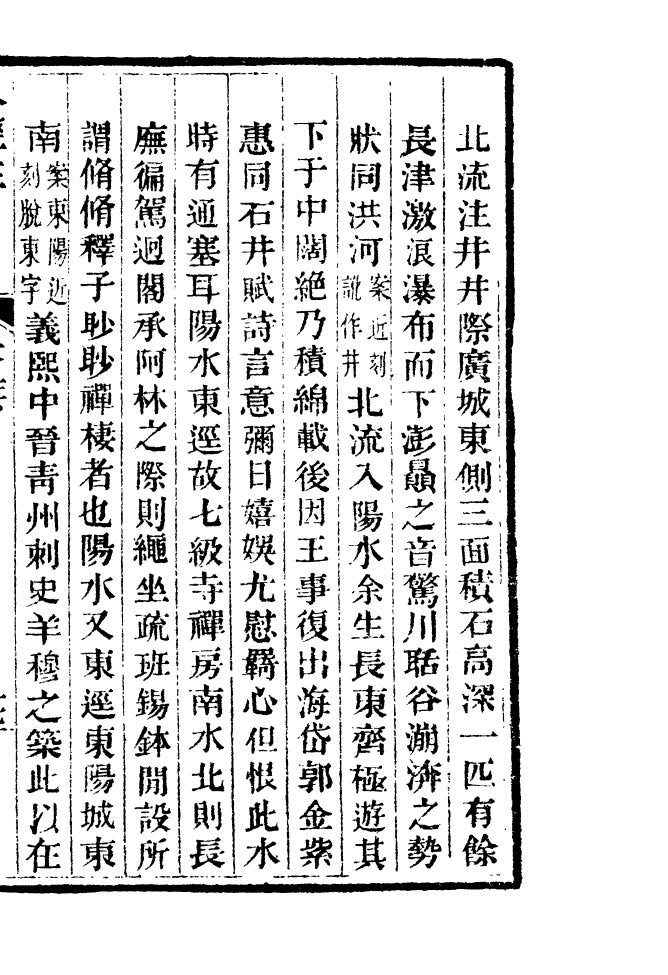 北流注井井際廣城東側三面積石高深一匹有餘
長津激浪瀑布而下澎贔之音驚川聒谷漰濟之勢
狀同洪河案近刻訛作井北流入陽水余生長東齊極遊其
下于中闊絶乃積綿載後因王事復出海岱郭金紫
惠同石井賦詩言意彌日嬉娛尤慰羇心但恨此水
時有通塞耳陽水東逕故七級寺禪房南水北則長
廡徧駕迥閣承阿林之際則繩坐疏班錫鉢閒設所
謂脩脩釋子眇眇禪棲者也陽水又東逕東陽城東
南案東陽近刻脫東字義熙中晉靑州刺史羊穆之築此以在